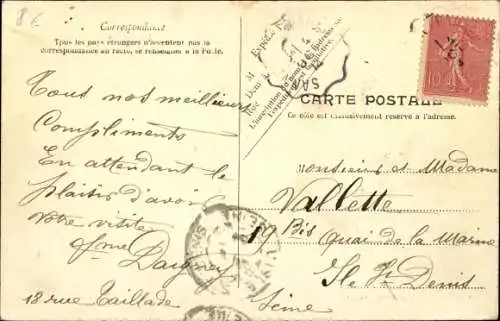 86
Correspondance
Tous les pays étrangers n'acceptent pas la
correspondance au recto, se renseigner à la Poste.
Tous nos meilleurs
Compliments
En attendant le
plaisir d'avoir
votre visite
18 rue Taillade
M
Expédié
Demt
Rue
CARTE POSTALE
Ce côté est exclusivement réservé à l'adresse.
Monsieur et Madame
Vallette
19 Bis quai de la Marine
Ile St Denis
Seine